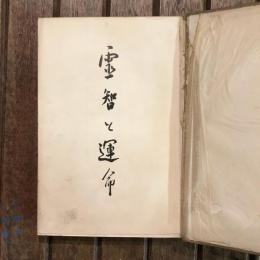 霊智と運命